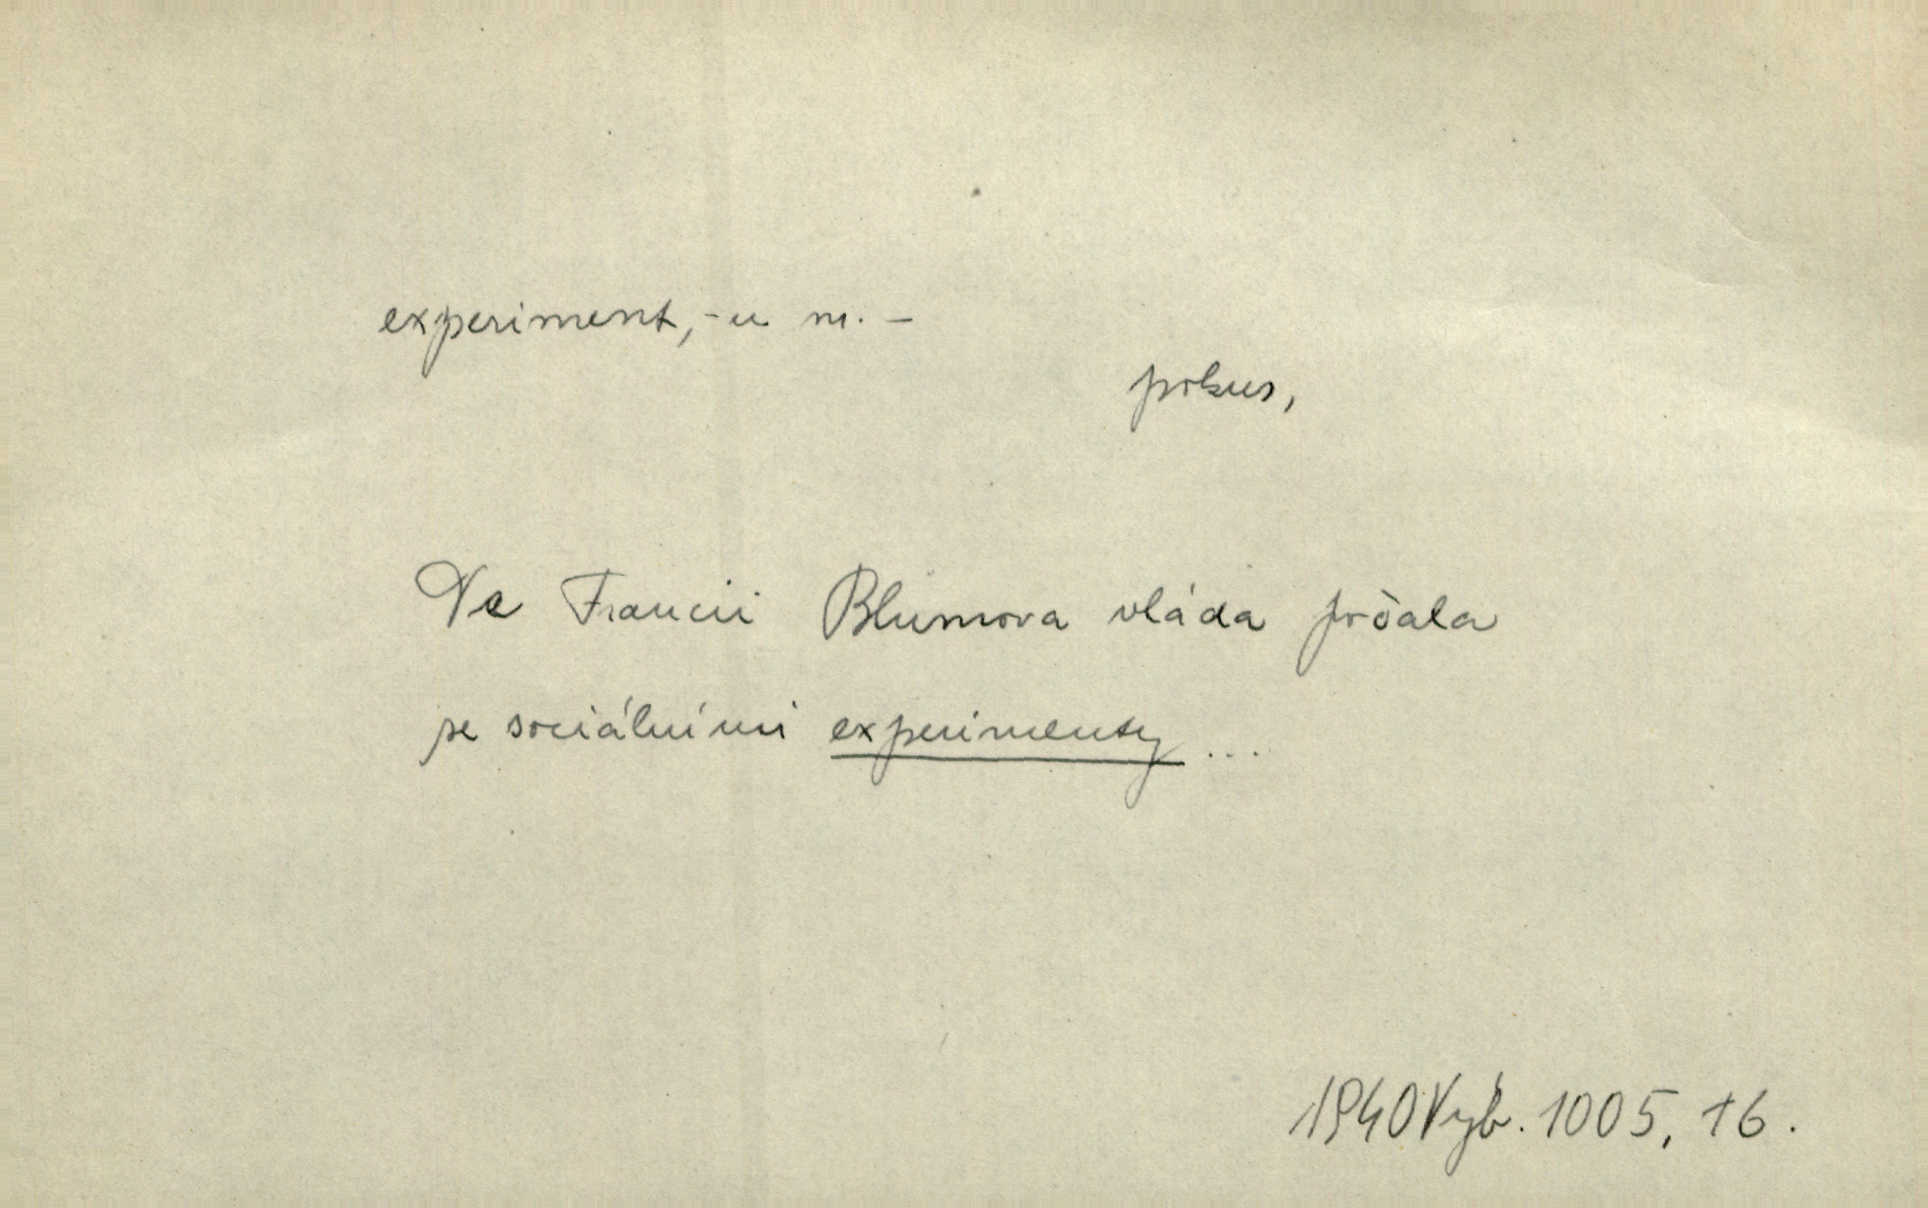 experiment, -u m. -
pokus,
Ve Francii Blumova vláda počala
se sociálními experimenty ...
1940 Výb. 1005, 16.